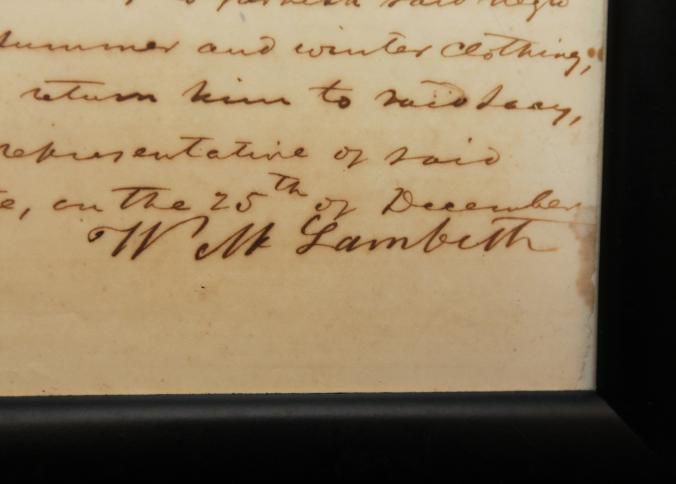 furnish said negro
summer and winter clothing,
return him to said Lacy,
representative of said
e, on the 25th of December
W M Lambeth